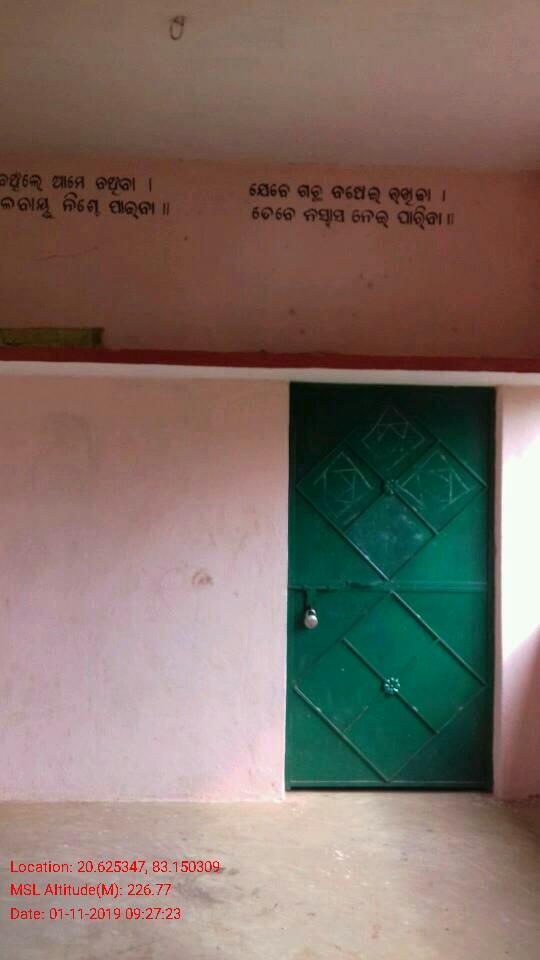 ଆମେ ବଞ୍ଚିବା ।
ପାଇବା ॥
ଯେବେ ଗଛ ବଞ୍ଚେଇ ରଖିବା ।
ତେବେ ନେଇ ପାରିବା ॥
Location: 20.625347, 83.150309
MSL Altitude(M): 226.77
Date: 01-11-2019 09:27:23